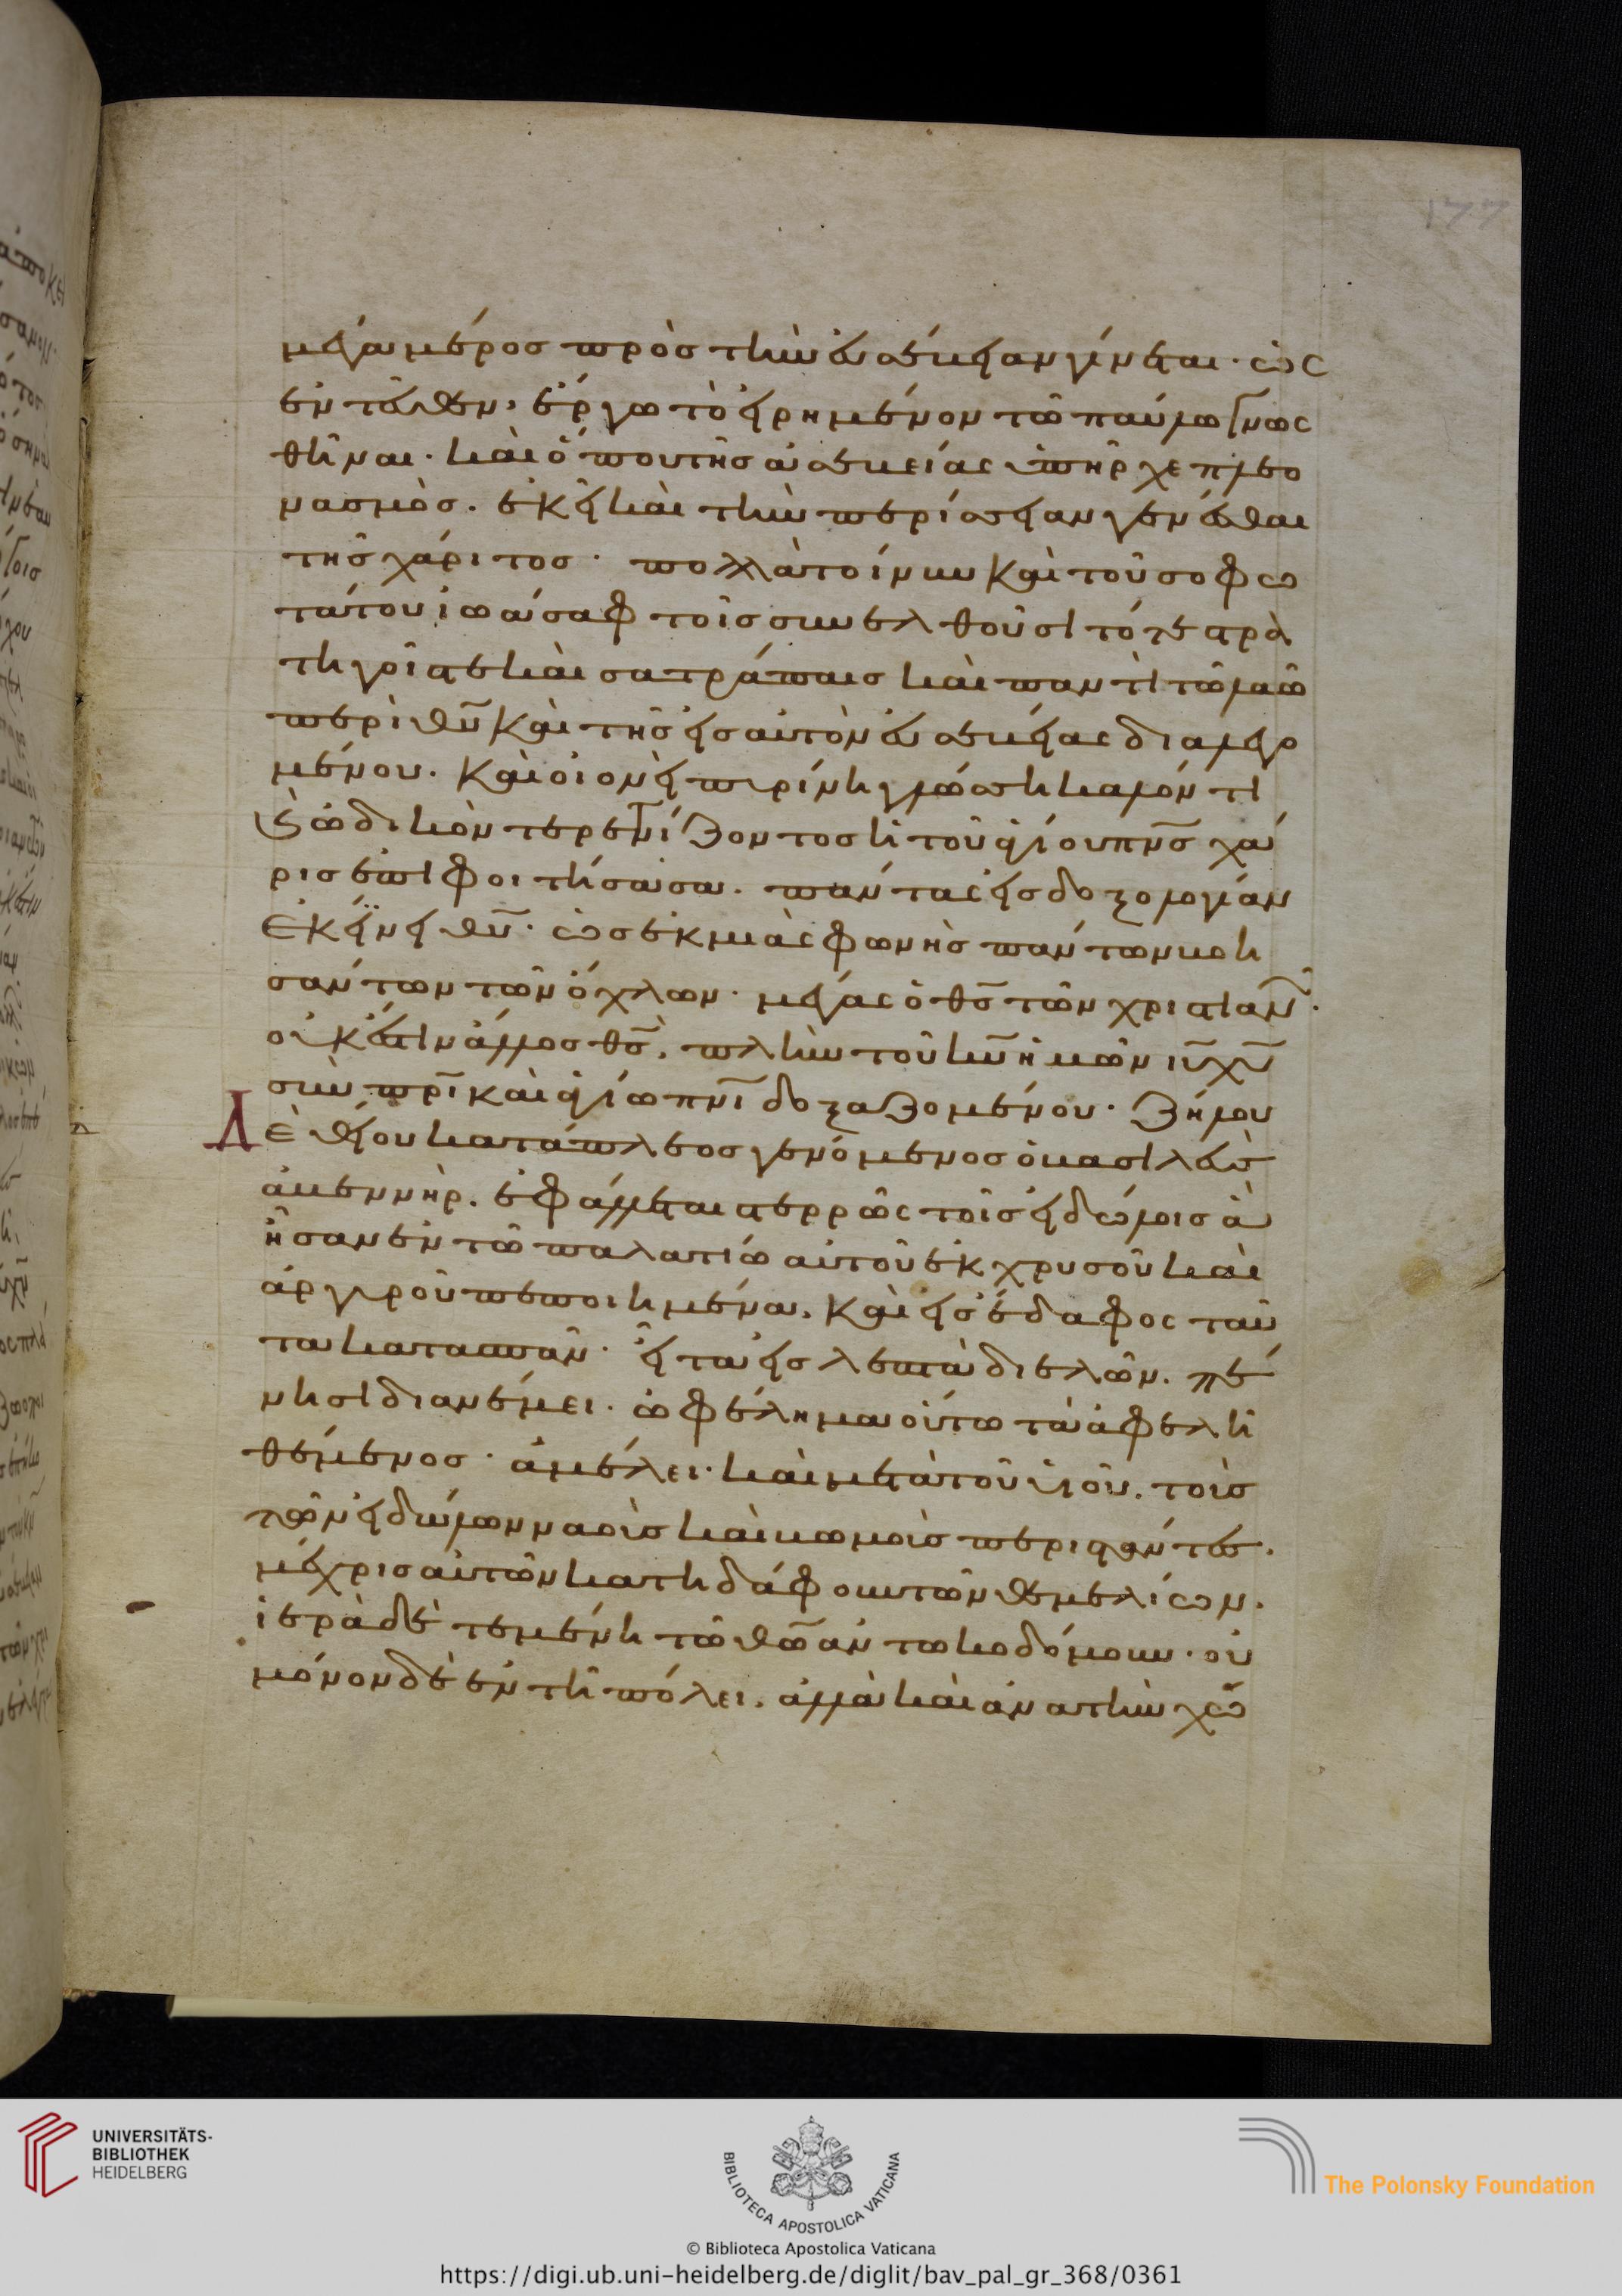 μέγα μέρος πρὸς τὴν εὐσέβειαν γίνεται· ὡς
ἐντεῦθεν, ἔργω τὸ εἰρημένον τῶ παύλω γνωσ
θῆναι· καὶ ὅπου τῆς ἀσεβείας ὑπῆρχε πλεο
νασμὸς. ἐκεῖ καὶ τὴν περίσσειαν γενέσθαι
τῆς χάριτος· πολλὰ τοίνυν καὶ τοῦ σοφω
τάτου ἰωάσαφ τοῖς συνελθοῦσι τότε στρα
τηγοῖς τε καὶ σατράπαις καὶ παντὶ τῶ λαῶ
περὶ θῦ καὶ τῆς εἰς αὐτὸν εὐσεβείας διαλεγο
μένου. καὶ οἱονεὶ πυρίνη γλώσση καλόν τι
καὶ ὠδικὸν τερετίζοντος ἡ τοῦ ἁγίου πνς χά
ρις ἐπιφοιτήσασα. πάντας εἰς δοξολογίαν
ἐκίνει θῦ· ὡς ἐκ μιᾶς φωνῆς πάντων βοη
σάντων τῶν ὄχλων· μέγας ὁ θς τῶν χριστιαν·
οὐκ ἔστιν ἄλλος θς, πλὴν τοῦ κυ ἡμῶν ιυ χυ
σὺν πρι καὶ ἁγίω πνι δοξαζομένου· ζήλου
Δὲ θείου κατάπλεος γενόμενος ὁ βασιλεὺς
ἀβεννὴρ. ἐφάλλεται στερρῶς τοῖς εἰδώλοις ἃ
ἦσαν ἐν τῶ παλατίω αὐτοῦ ἐκ χρυσοῦ καὶ
ἀργύρου πεποιημένα. καὶ εἰς ἔδαφος ταῦ
τα κατασπᾶ· εἶτα εἰς λεπτὰ διελὼν. πέ
νησι διανέμει· ὠφέλημα οὕτω τὰ ἀνωφελῆ
θέμενος· ἀμέλει· καὶ μετὰ τοῦ υἱοῦ. τοῖς
τῶν εἰδώλων ναοῖς καὶ βωμοῖς περιστάντες.
μέχρις αὐτῶν κατηδάφουν τῶν θεμελίων.
ἱερὰ δὲ τεμένη τῶ θῶ ἀντωκοδόμουν· οὐ
μόνον δὲ ἐν τῆ πόλει. ἀλλὰ καὶ ἀνα τὴν χώ
UNIVERSITÄTS-
BIBLIOTHEK
HEIDELBERG
BIBLIOTECA APOSTOLICA VATICANA
The Polonsky Foundation
© Biblioteca Apostolica Vaticana
https://digi.ub.uni-heidelberg.de/diglit/bav_pal_gr_368/0361